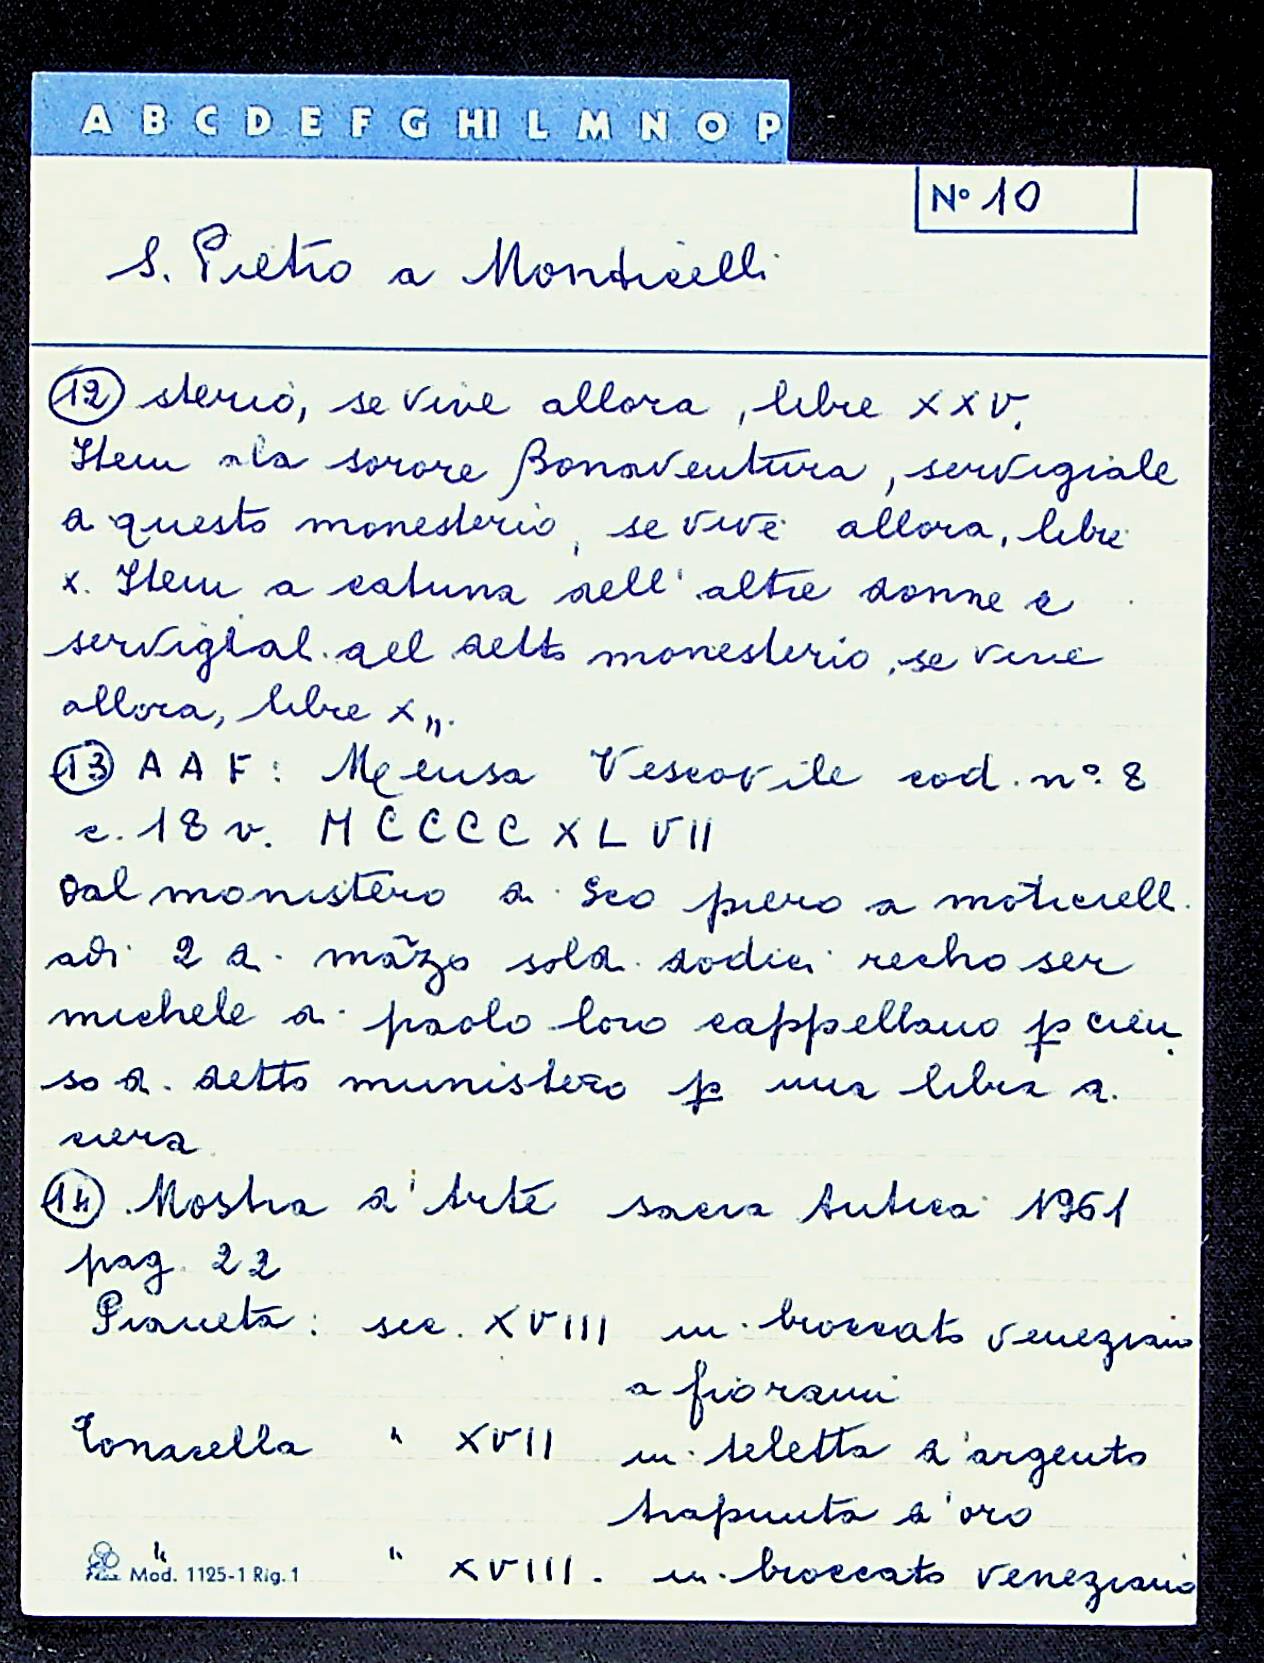 A B C D E F G HI L M N O P
N° 10
S. Pietro a Monticelli
(12) sterio, se vive allora, libre XXV.
Item ala sorore Bonaventura, servigiale
a questo monesterio, se vive allora, libre
x. Item a catuna dell'altre donne e
servigial. del detto monesterio, se vive
allora, libre x„.
(13) A A F: Mensa Vescovile cod. n°. 8
c. 18 v. MCCCCXLVII
Dal monistero d. Sco piero a moticiell.
adi 2 d. māzo sold. dodici recho ser
michele d. paolo loro cappellano ꝑ cien
so d. detto munistero ꝑ una libra d.
ciera
(14) Mostra d'Arte sacra Antica 1961
pag. 22
Pianeta: sec. XVIII in broccato veneziano
a fiorami
Tonacella " XVII in teletta d'argento
trapunta d'oro
" " XVIII. in broccato veneziano
Mod. 1125-1 Rig. 1